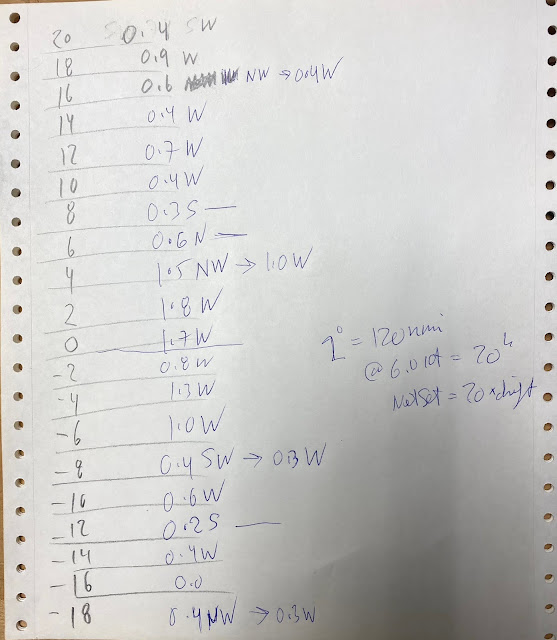 20 0.74 SW
18 0.9 W
16 0.6 NW → 0.4W
14 0.4 W
12 0.7 W
10 0.4W
8 0.3 S —
6 0.6 N —
4 1.5 NW → 1.0W
2 1.8 W
0 1.7 W
-2 0.8 W
-4 1.3 W
-6 1.0 W
-8 0.4 SW → 0.3 W
-10 0.6 W
-12 0.2 S —
-14 0.4W
-16 0.0
-18 0.4 NW → 0.3W
2° = 120 nmi
@ 6.0 kt = 20h
Net Set = 20 × drift